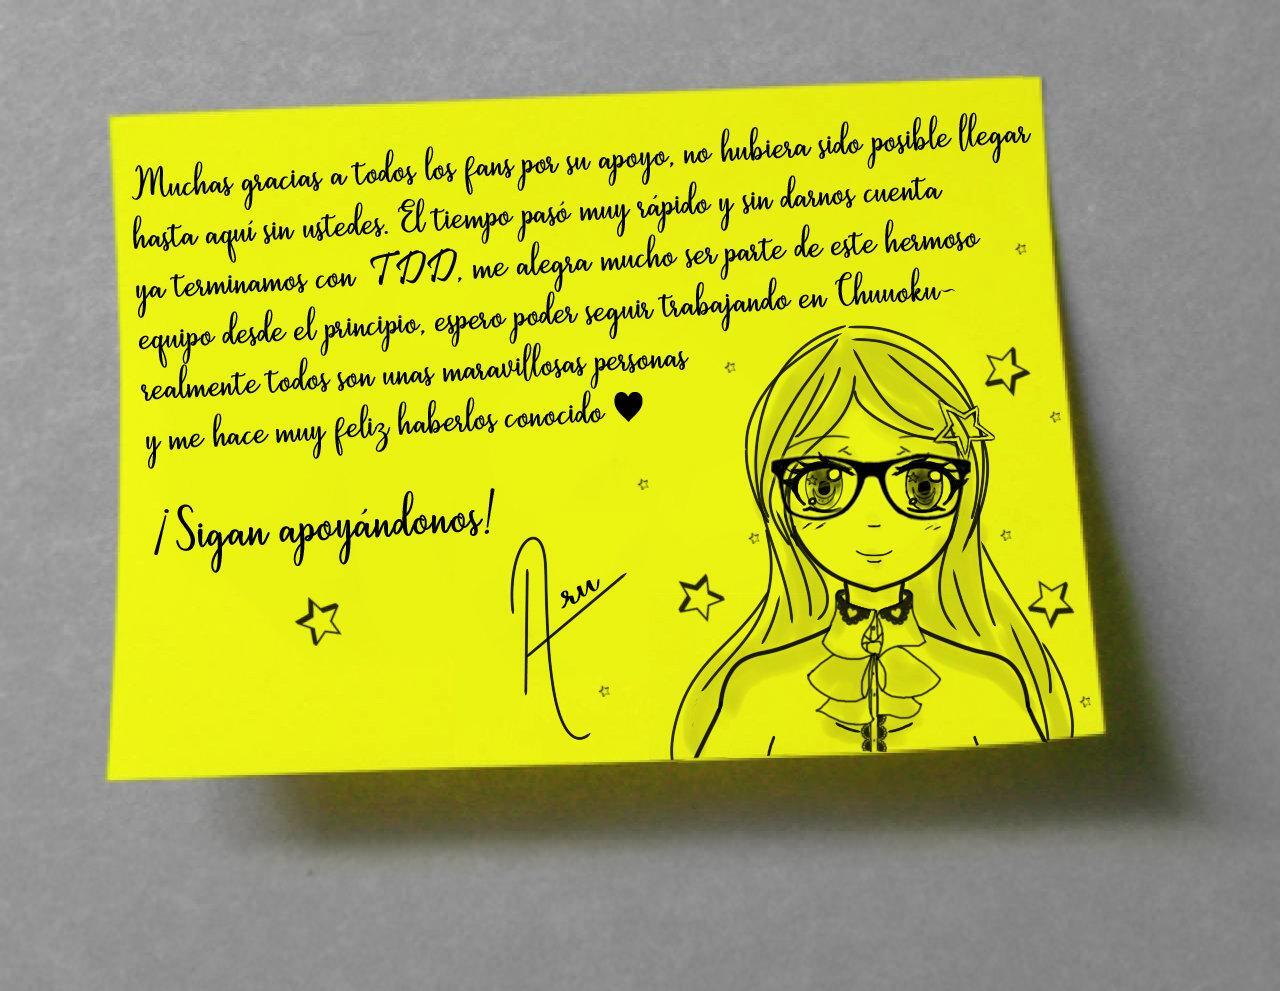 Muchas gracias a todos los fans por su apoyo, no hubiera sido posible llegar
hasta aquí sin ustedes. El tiempo pasó muy rápido y sin darnos cuenta
ya terminamos con TDD, me alegra mucho ser parte de este hermoso
equipo desde el principio, espero poder seguir trabajando en Chuuoku~
realmente todos son unas maravillosas personas
y me hace muy feliz haberlos conocido ♥
¡Sigan apoyándonos!
Aru